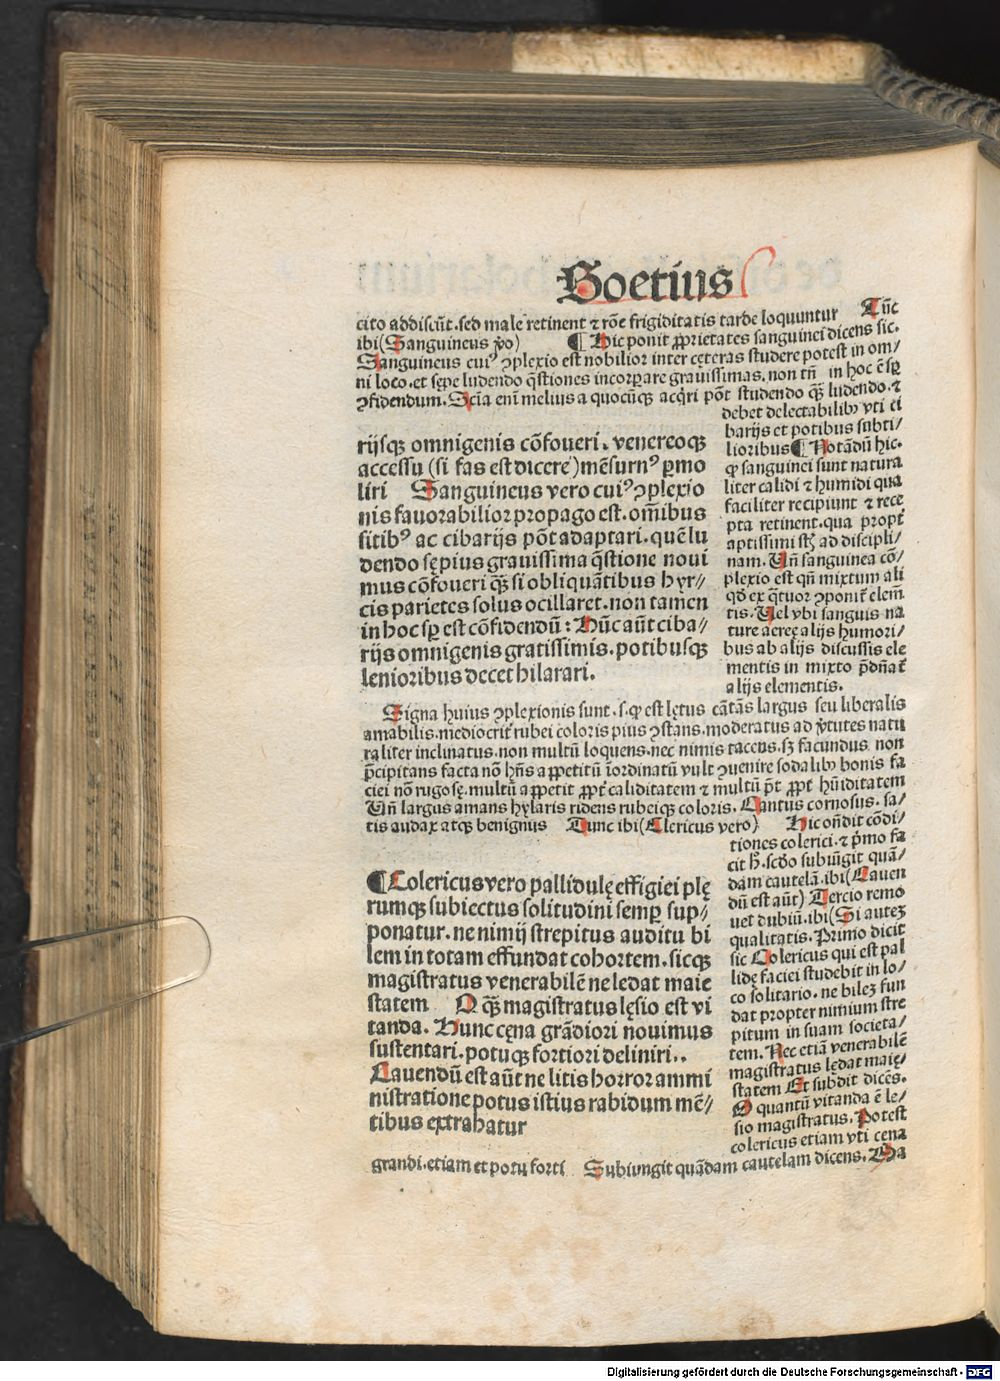 Boetius
cito addiscūt. sed male retinent ⁊ rōe frigiditatis tarde loquuntur Tūc
ibi (Sanguineus v̄o) ¶ Hic ponit ꝓprietates sanguinei dicens sic.
Sanguineus cuiꝰ ꝯplexio est nobilior inter cęteras studere potest in om/
ni loco. et sępe ludendo q̄stiones incorꝑare grauissimas. non tn̄ in hoc ē sꝑ
ꝯfidendum. Scīa enī melius a quocūqꝫ acq̄ri pōt studendo qꝫ̄ ludendo. ⁊
debet delectabilibꝰ vti ci
barijs et potibus subti/
lioribus ¶ Notādū hic.
ꝙ sanguinei sunt natura
liter calidi ⁊ humidi qua
faciliter recipiunt ⁊ rece
pta retinent. qua propt̄
aptissimi sꝫ ad discipli/
nam. Un̄ sanguinea cō/
plexio est qn̄ mixtum ali
qd̄ ex q̄tuor ꝯponit᷑ elem̄
tis. Uel vbi sanguis na
ture aereę alijs humori/
bus ab alijs discussis ele
mentis in mixto p̄dn̄at᷑
alijs elementis.
rijsqꝫ omnigenis cōfoueri. venereoqꝫ
accessu (si fas est dicere) mēsurnꝰ ꝑmo
liri Sanguineus vero cuiꝰ ꝯplexio
nis fauorabilior propago est. om̄ibus
sitibꝰ ac cibarijs pōt adaptari. quē lu
dendo sępius grauissima q̄stione noui
mus cōfoueri qꝫ̄ si obliquātibus hyr/
cis parietes solus ocillaret. non tamen
in hoc sꝑ est cōfidendū: Hūc aūt ciba/
rijs omnigenis gratissimis. potibusqꝫ
lenioribus decet hilarari.
Signa huius ꝯplexionis sunt. s. ꝙ est lętus cātās largus seu liberalis
amabilis. mediocrit᷑ rubei coloris pius ꝯstans. moderatus ad v̄tutes natu
raliter inclinatus. non multū loquens. nec nimis tacens. sꝫ facundus non
p̄cipitans facta nō hn̄s appetitū īordinatū vult ꝯuenire sodalibꝰ bonis fa
ciei nō rugosę. multū appetit ꝓpt᷑ caliditatem ⁊ multū p̄t ꝓpt᷑ hūiditatem
Un̄ largus amans hylaris ridens rubeiqꝫ coloris. Cantus cornosus. sa/
tis audax atqꝫ benignus Tunc ibi (Clericus vero) Hic on̄dit cōdi/
tiones colerici. ⁊ p̄mo fa
cit h̄. scd̄o subiūgit quā/
dam cautelā. ibi (Cauen
dū est aūt) Tercio remo
uet dubiū. ibi (Si auteꝫ
qualitatis. Primo dicit
sic Colericus qui est pal
lidę faciei studebit in lo/
co solitario. ne bileꝫ fun
dat propter nimium stre
pitum in suam societa/
tem. Nec etiā venerabilē
magistratus ledat maię/
statem Et subdit dicēs.
O quantū vitanda ē le/
sio magistratus. Potest
colericus etiam vti cena
¶ Colericus vero pallidulę effigiei plę
rumqꝫ subiectus solitudini semꝑ sup/
ponatur. ne nimij strepitus auditu bi
lem in totam effundat cohortem. sicqꝫ
magistratus venerabilē ne ledat maie
statem O qꝫ̄ magistratus lęsio est vi
tanda. Hunc cęna grādiori nouimus
sustentari. potuqꝫ fortiori deliniri..
Cauendū est aūt ne litis horror ammi
nistratione potus istius rabidum mē/
tibus extrahatur
grandi. etiam et potu forti Subiungit quādam cautelam dicens. Da
Digitalisierung gefördert durch die Deutsche Forschungsgemeinschaft - DFG